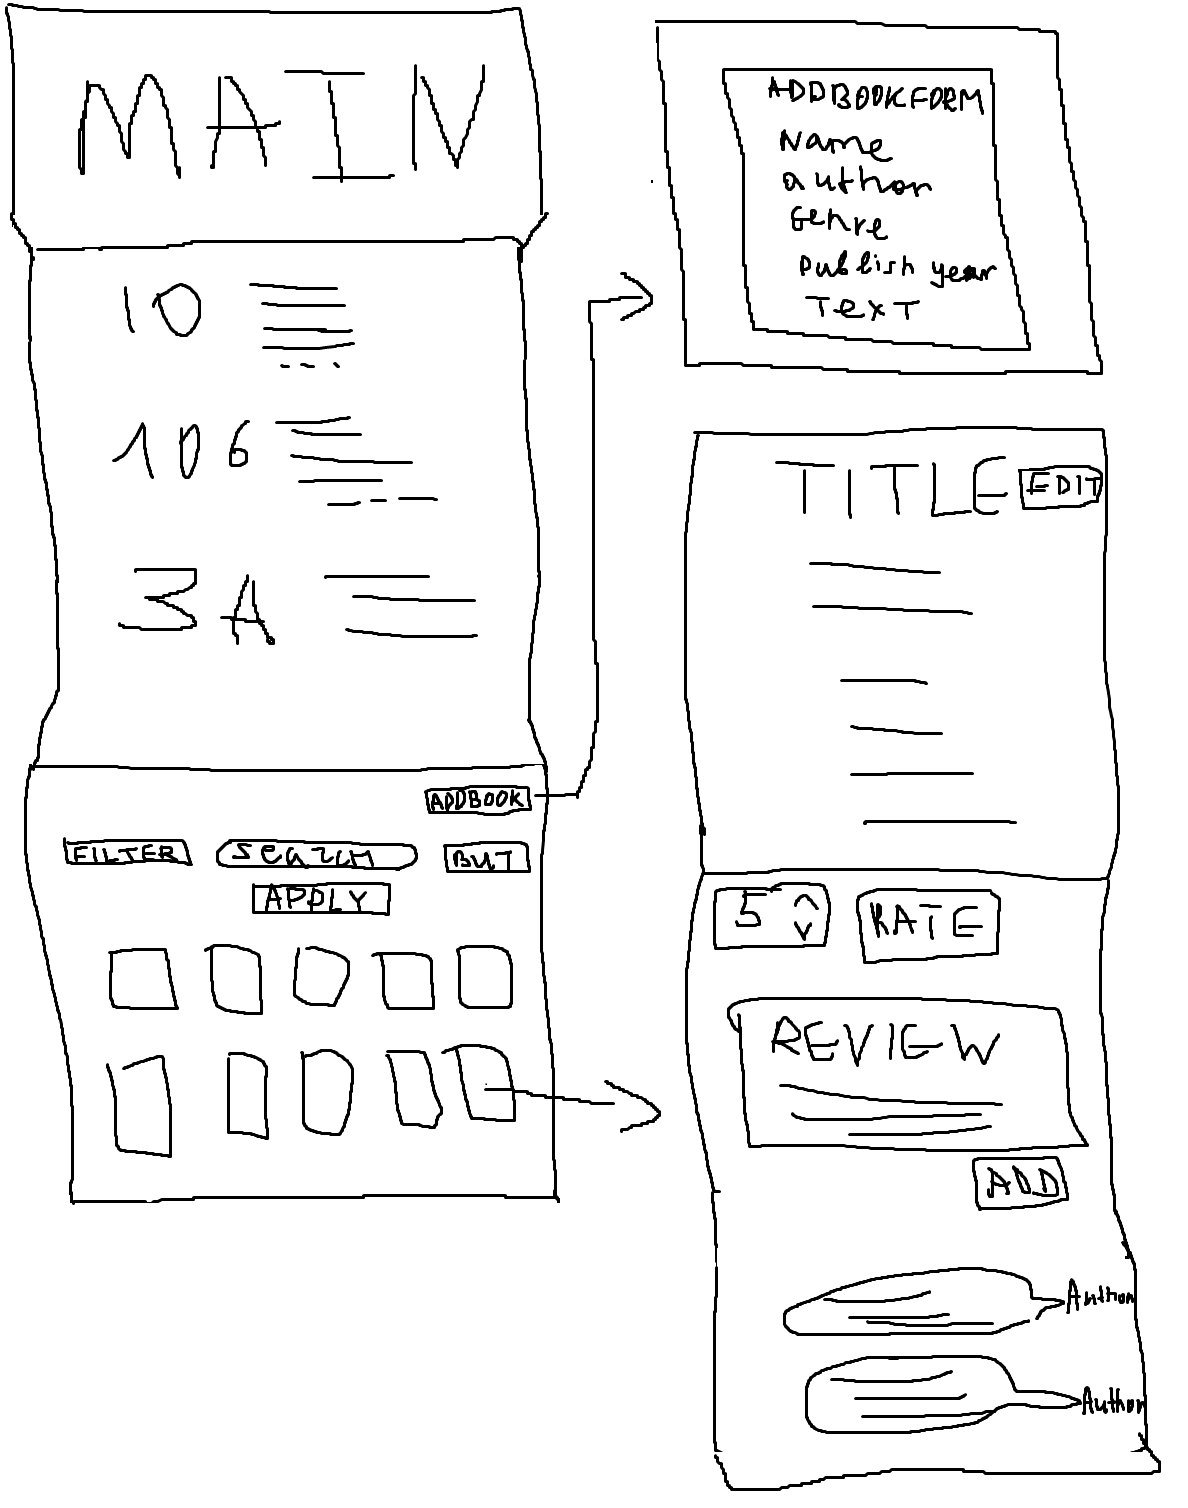 MAIN
10
106
3A
ADDBOOK
FILTER
search
BUT
APPLY
ADDBOOKFORM
Name
author
Genre
Publish year
Text
TITLE
EDIT
5
RATE
REVIEW
ADD
Author
Author